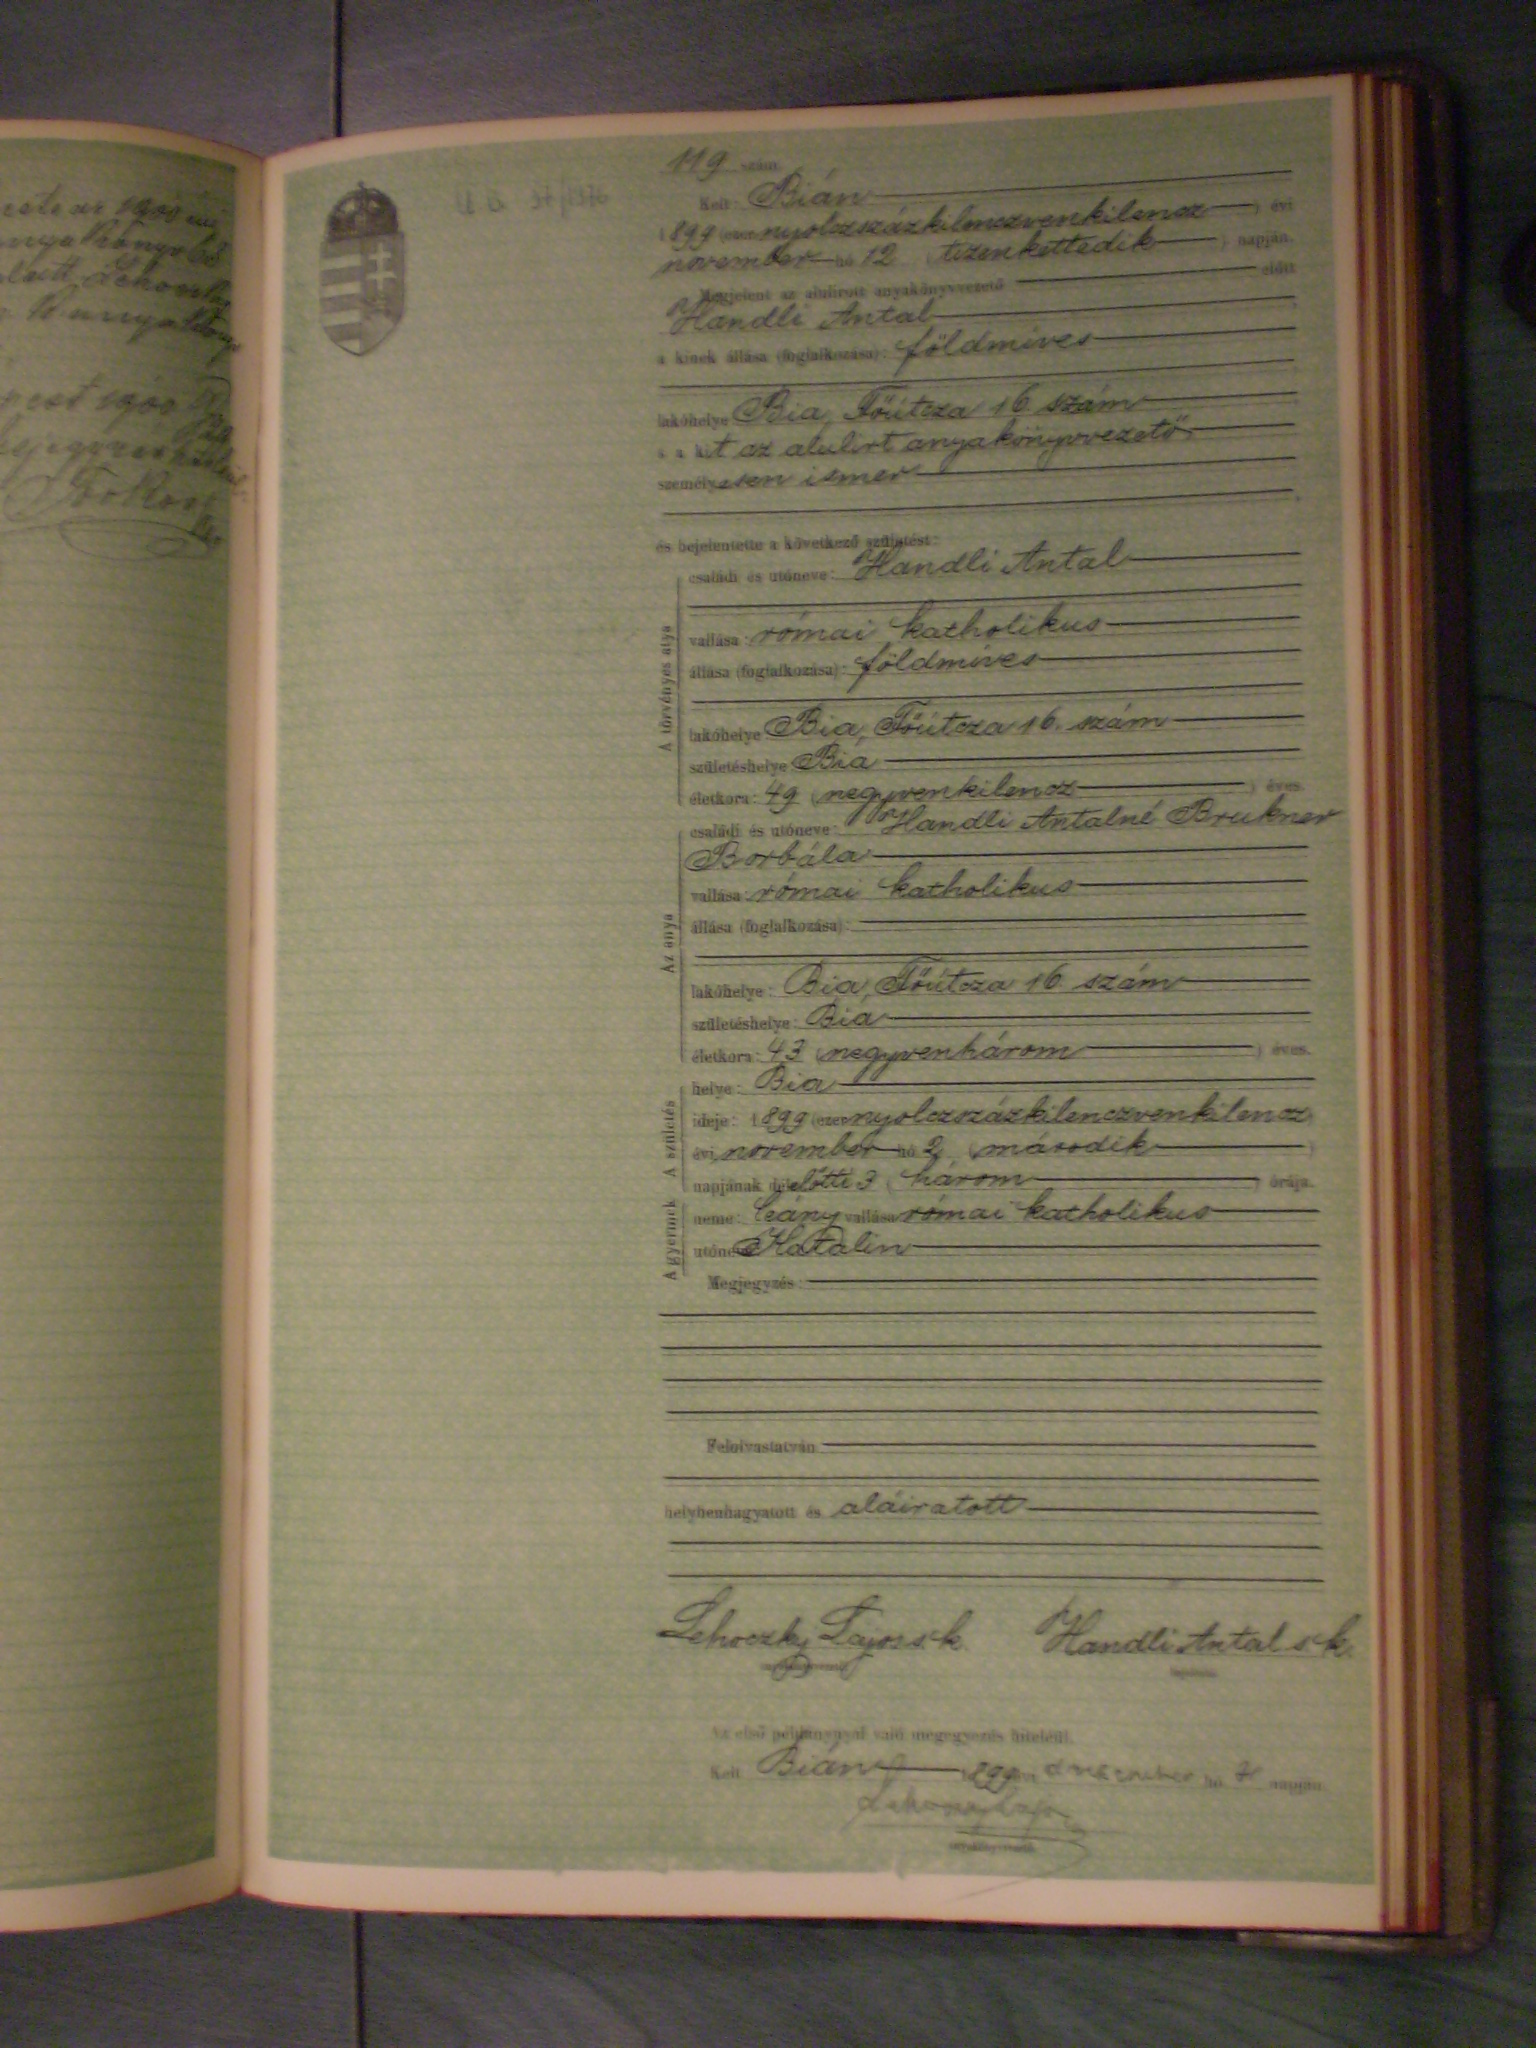 119 szám
Kelt: Bián
1899 (ezernyolczszázkilenczvenkilencz) évi
november hó 12 (tizenkettedik) napján.
Megjelent az alulirott anyakönyvvezető előtt
Handli Antal
a kinek állása (foglalkozása): földmíves
lakóhelye Bia, Főútcza 16 szám
s a kit az alulirt anyakönyvvezető
személyesen ismer
és bejelentette a következő születést:
A törvényes atya
családi és utóneve: Handli Antal
vallása: római katholikus
állása (foglalkozása): földmíves
lakóhelye Bia, Főútcza 16. szám
születéshelye Bia
életkora: 49 (negyvenkilencz) éves.
Az anya
családi és utóneve: Handli Antalné Brukner
Borbála
vallása: római katholikus
állása (foglalkozása):
lakóhelye: Bia, Főútcza 16 szám
születéshelye: Bia
életkora: 43 (negyvenhárom) éves.
A születés
helye: Bia
ideje: 1899 (ezernyolczszázkilenczvenkilencz)
évi november hó 2 (második)
napjának délelőtti 3 (három) órája.
A gyermek
neme: leány vallása római katholikus
utóneve Katalin
Megjegyzés:
Felolvastatván
helybenhagyatott és aláiratott
Lehoczky Lajos s.k. Handli Antal s.k.
Az első példánynyal való megegyezés hiteléül.
Kelt Bián 1899 évi deczember hó napján